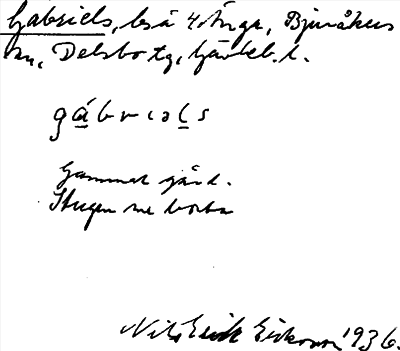 Gabriels, bså 4 Ånga, Bjuråkers
sn, Delsbo tg, Gävleb. l.
gábriəls
Gammal gård.
Stugen nu borta
Nils Erik Eriksson 1936.